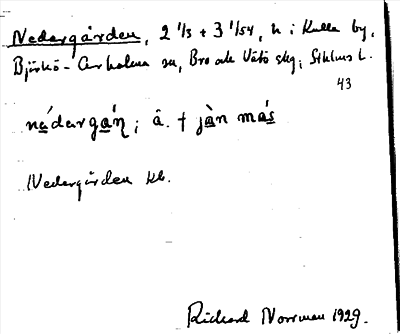 Nedergården, 2 1/3 + 3 1/54, h i Kulla by,
Björkö-Arholma sn, Bro och Vätö skg, Sthlms l.
43
nèdargá̱ŋ; â. † jà̱n má̱s
Nedergården kb.
Richard Norrman 1929.